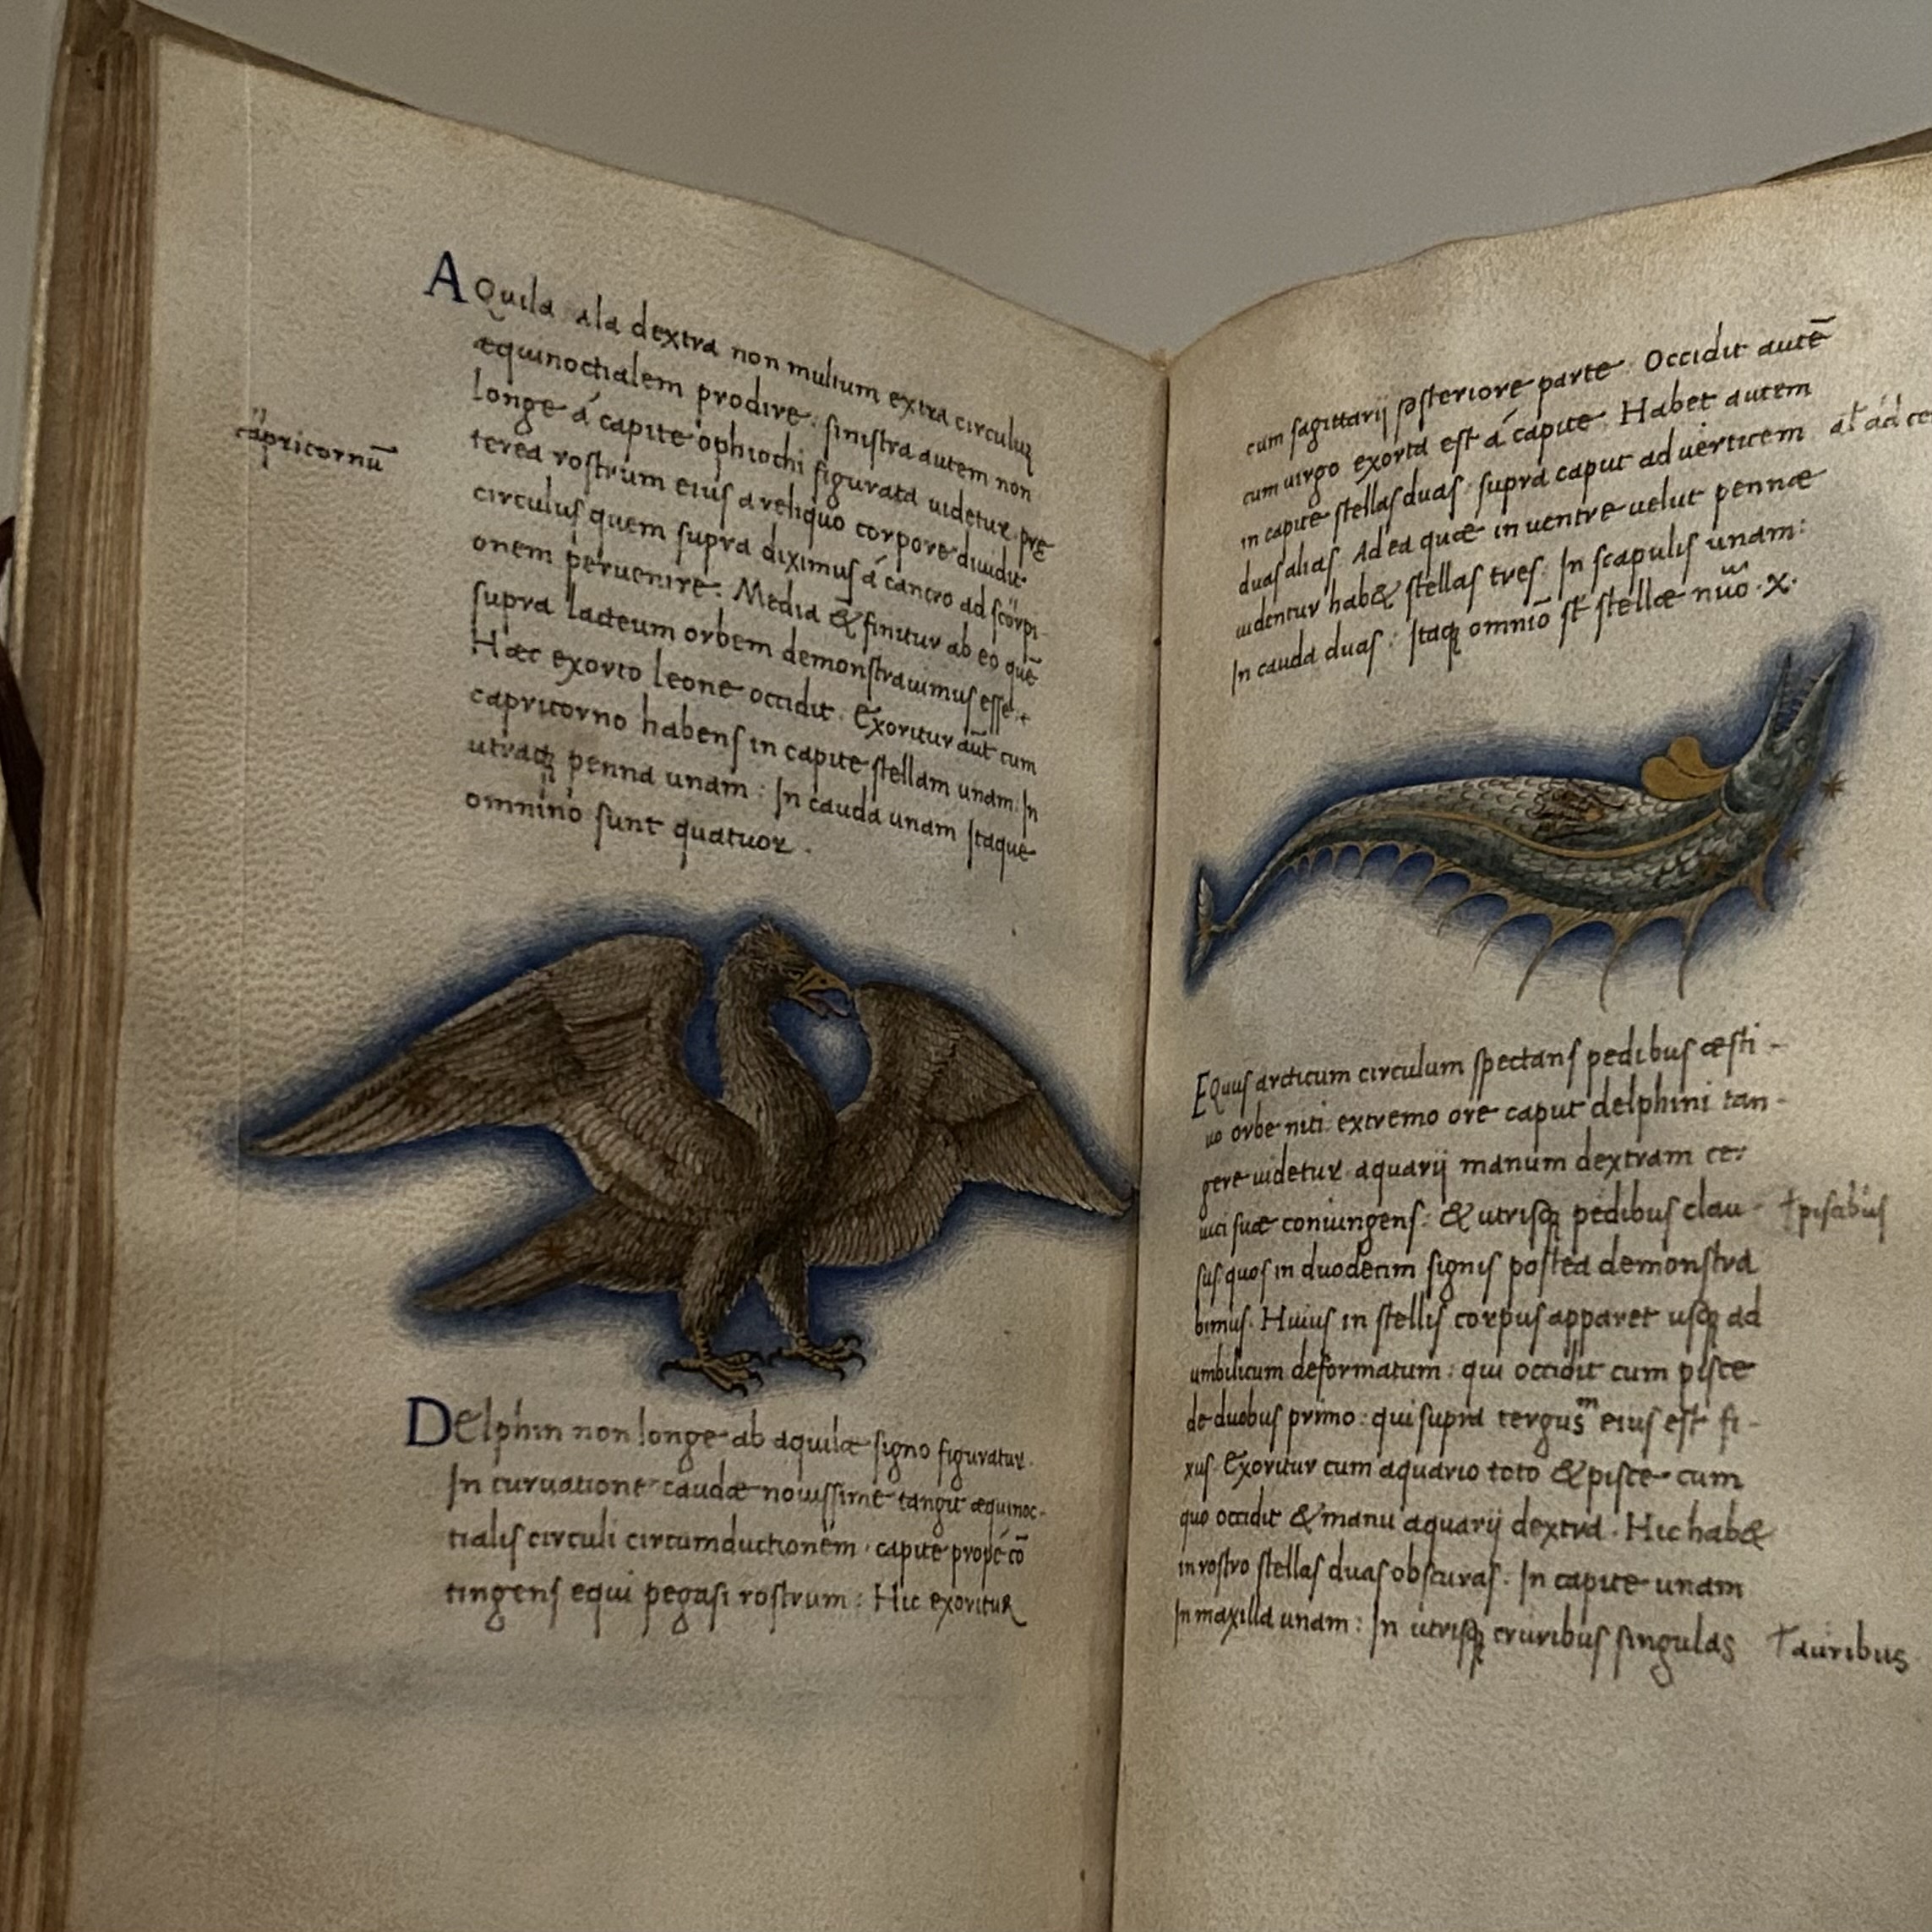 AQuila ala dextra non multum extra circuluȝ
æquinoctialem prodire: sinistra autem non
longe á capite ophiochi figurata uidetur. pre
cãpricornũ
terea rostrum eius a reliquo corpore diuidit
circulus quem supra diximus á cancro ad scorpi-
onem peruenire: Media & finitur ab eo quẽ
supra lacteum orbem demonstrauimus esse.
Hæc exorto leone occidit. Exoritur aũt cum
capricorno habens in capite stellam unam. In
utraqȝ penna unam: In cauda unam Itaque
omnino sunt quatuor.
DElphin non longe ab aquilæ signo figuratur.
In curuatione caudæ nouissime tangit æquinoc-
tialis circuli circumductionem, capite prope cõ
tingens equi pegasi rostrum: Hic exoritur
cum sagittarij posteriore parte. Occidit autẽ
cum uirgo exorta est á capite. Habet autem
in capite stellas duas. supra caput ad uerticem
duas alias. Ad ea quæ in uentre uelut pennæ
uidentur hab& stellas tres. In scapulis unam:
In cauda duas: Itaqȝ omniõ st̃ stellæ nũo .x.
EQuus arcticum circulum spectans pedibus æsti-
uo orbe niti. extremo ore caput delphini tan-
gere uidetur. aquarij manum dextram cer
uici suæ coniungens: & utrisqȝ pedibus clau- †piscibus
sus. quos in duodecim signis postea demonstra
bimus. Huius in stellis corpus apparet usqȝ ad
umbilicum deformatum: qui occidit cum pisce
de duobus primo: qui supra tergusᵐ eius est fi-
xus. Exoritur cum aquario toto & pisce cum
quo occidit & manu aquarij dextra. Hic hab&
in rostro stellas duas obscuras. In capite unam
In maxilla unam: In utrisqȝ cruribus singulas †auribus